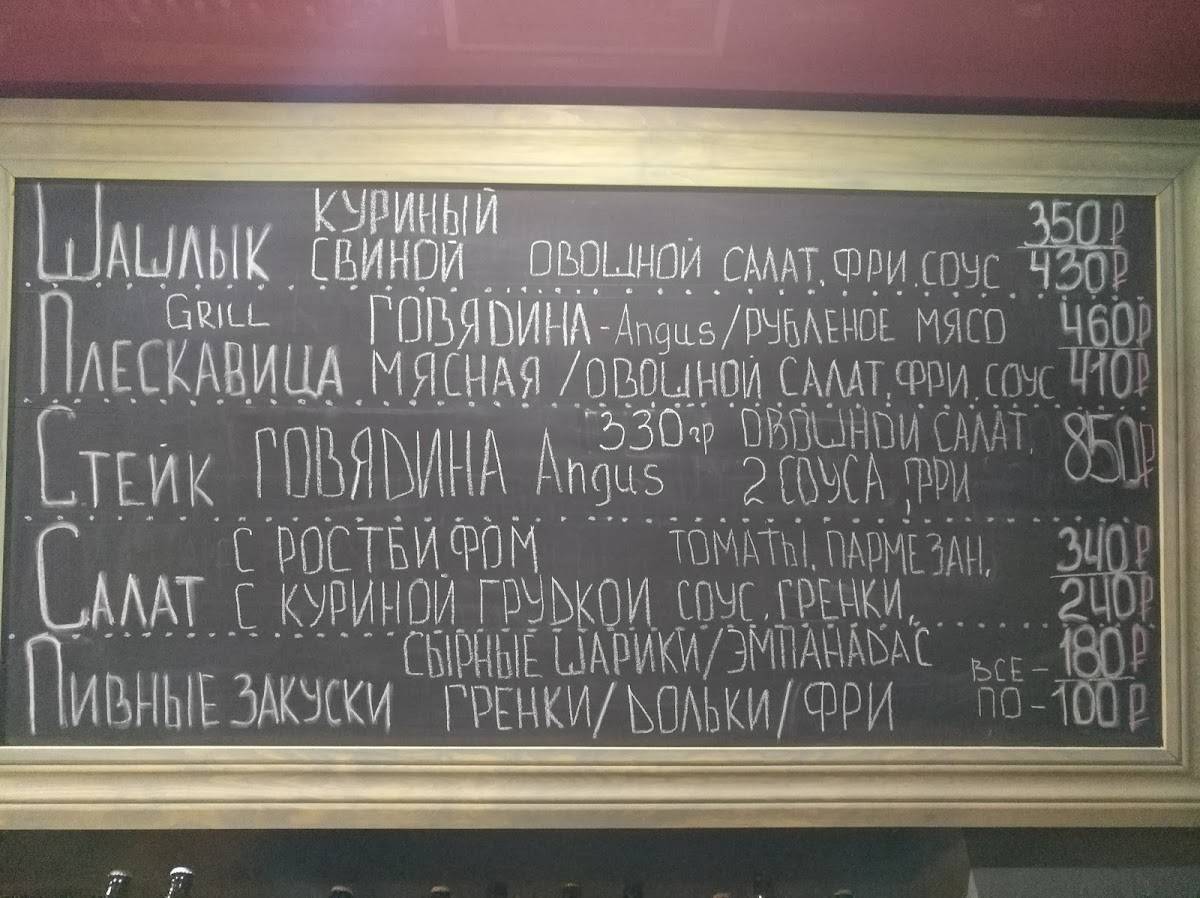 Шашлык КУРИНЫЙ 350₽
СВИНОЙ ОВОЩНОЙ САЛАТ, ФРИ, СОУС 430₽
GRILL ГОВЯДИНА-Angus/РУБЛЕНОЕ МЯСО 460₽
Плескавица МЯСНАЯ /ОВОЩНОЙ САЛАТ, ФРИ, СОУС 410₽
Стейк ГОВЯДИНА Angus 330гр ОВОЩНОЙ САЛАТ, 850₽
2 СОУСА, ФРИ
С РОСТБИФОМ ТОМАТЫ, ПАРМЕЗАН, 340₽
Салат С КУРИНОЙ ГРУДКОЙ СОУС, ГРЕНКИ, 240₽
СЫРНЫЕ ШАРИКИ/ЭМПАНАДАС ВСЕ - 180₽
Пивные закуски ГРЕНКИ/ДОЛЬКИ/ФРИ ПО - 100₽